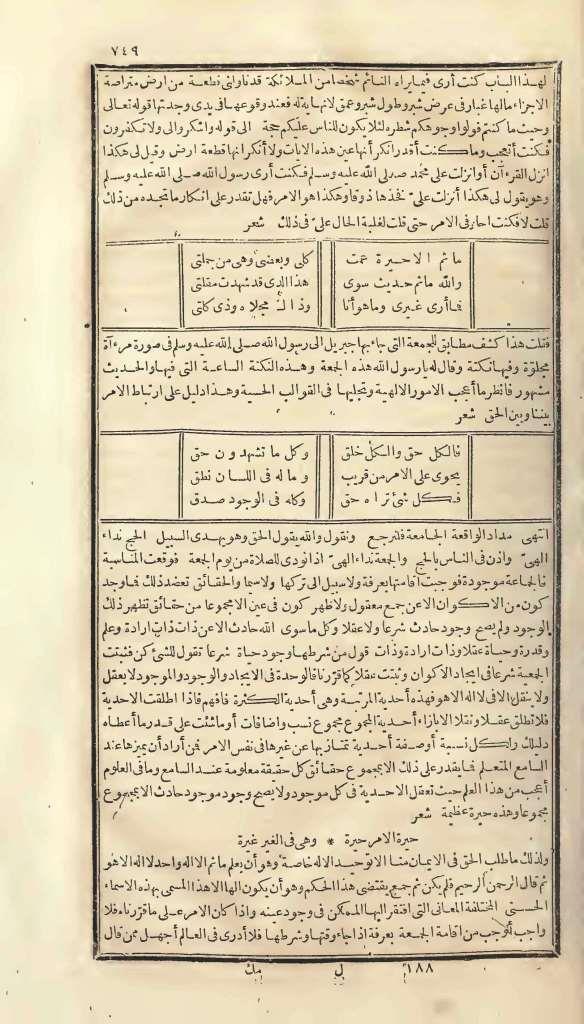 ٧٤٩
لهذا الباب كنت أرى فيما يراه النائم شخصا من الملائكة قد ناولنى قطعة من أرض متراصة
الاجزاء مالها غبار فى عرض شبر وطول شبر وعمق لانهاية له فعند وقوعها فى يدى وجدتها قوله تعالى
وحيث ما كنتم فولوا وجوهكم شطره لئلا يكون للناس عليكم حجة الى قوله واشكروا لى ولا تكفرون
فكنت أتعجب وما كنت أقدر انكر أنها عين هذه الايات ولا أنكر انها قطعة ارض وقيل لى هكذا
انزل القرءآن أو انزلت على محمد صلى الله عليه وسلم فكنت أرى رسول الله صلى الله عليه وسلم
وهو يقول لى هكذا أنزلت علىّ فخذها ذوقا وهكذا هو الامر فهل تقدر على انكار ما تجده من ذلك
قلت لا فكنت احار فى الامر حتى قلت لغلبة الحال علىّ فى ذلك شعر
ما ثم الا حيرة عمت كلى وبعضى وهى من جملتى
والله ما ثم حديث سوى هذا الذى قد شهدت مقلتى
فما أرى غيرى وما هو أنا وذا لـذ مجلاه وذى كلتى
فقلت هذا كشف مطابق للجمعة التى جاء بها جبريل الى رسول الله صلى الله عليه وسلم فى صورة مرءآة
مجلوّة وفيها نكتة وقال له يا رسول الله هذه الجمعة وهذه النكتة الساعة التى فيها والحديث
مشهور فانظر ما أعجب الامور الالهية وتجليها فى القوالب الحسية وهذا دليل على ارتباط الامر
بيننا وبين الحق شعر
فالكل حق والكل خلق وكل ما تشهدون حق
يحوى على الامر من قريب وما له فى اللسان نطق
فكل شئ تراه حق وكله فى الوجود صدق
انتهى مداد الواقعة الجامعة فلنرجع ونقول والله يقول الحق وهو يهدى السبيل الحج نداء
الهىّ واذن فى الناس بالحج والجمعة نداء الهىّ اذا نودى للصلاة من يوم الجمعة فوقعت المناسبة
فالجماعة موجودة فوجبت اقامتها بعرفة ولا سبيل الى تركها ولا سيما والحقائق تعضد ذلك فما وجد
كون من الاكوان الا عن جمع معقول ولا ظهر كون فى عين الا مجموعا من حقائق تظهر ذلك
الوجود ولم يصح وجود حادث شرعا ولا عقلا وكل ما سوى الله حادث الا عن ذات ذات ارادة وعلم
وقدرة وحياة عقلا وذات ارادة وذات قول من شرطها وجود حياة شرعا تقول للشئ كن فثبتت
الجمعية شرعا فى ايجاد الاكوان وثبتت عقلا كما قرّرنا فالوحدة فى الايجاد والوجود والموجود لا يعقل
ولا ينقل الا فى لا اله الا هو فهذه أحدية المرتبة وهى أحدية الكثرة فافهم فاذا اطلقت الاحدية
فلا تطلق عقلا ونقلا الا بازاء أحدية المجموع مجموع نسب واضافات أو ما شئت على قدر ما أعطاه
دليلك ولكل نسبة أو صفة أحدية تمتاز بها عن غيرها فى نفس الامر فمن أراد أن يميزها عند
السامع المتعلم فما يقدر على ذلك الا بمجموع حقائق كل حقيقة معلومة عند السامع وما فى العلوم
أعجب من هذا العلم حيث تعقل الاحدية فى كل موجود ولا يصح وجود موجود حادث الا بمجموع
مجموعا وهذه حيرة عظيمة شعر
حيرة الامر حيرة * وهى فى الغير غيرة
ولذلك ما طلب الحق فى الايمان منا الا توحيد الاله خاصة وهو أن يعلم ما ثم الا اله واحد لا اله الا هو
ثم قال الرحمن الرحيم فلم يكن ثم جمع يقتضى هذا الحكم وهو أن يكون الها الا هذا المسمى بهذه الاسماء
الحسنى المختلفة المعانى التى افتقر اليها الممكن فى وجود عينه واذا كان الامر على ما قرّرناه فلا
واجب أوجب من اقامة الجمعة بعرفة اذا جاء وقتها وشرطها فلا أدرى فى العالم أجهل ممن قال
١٨٨ ل مك